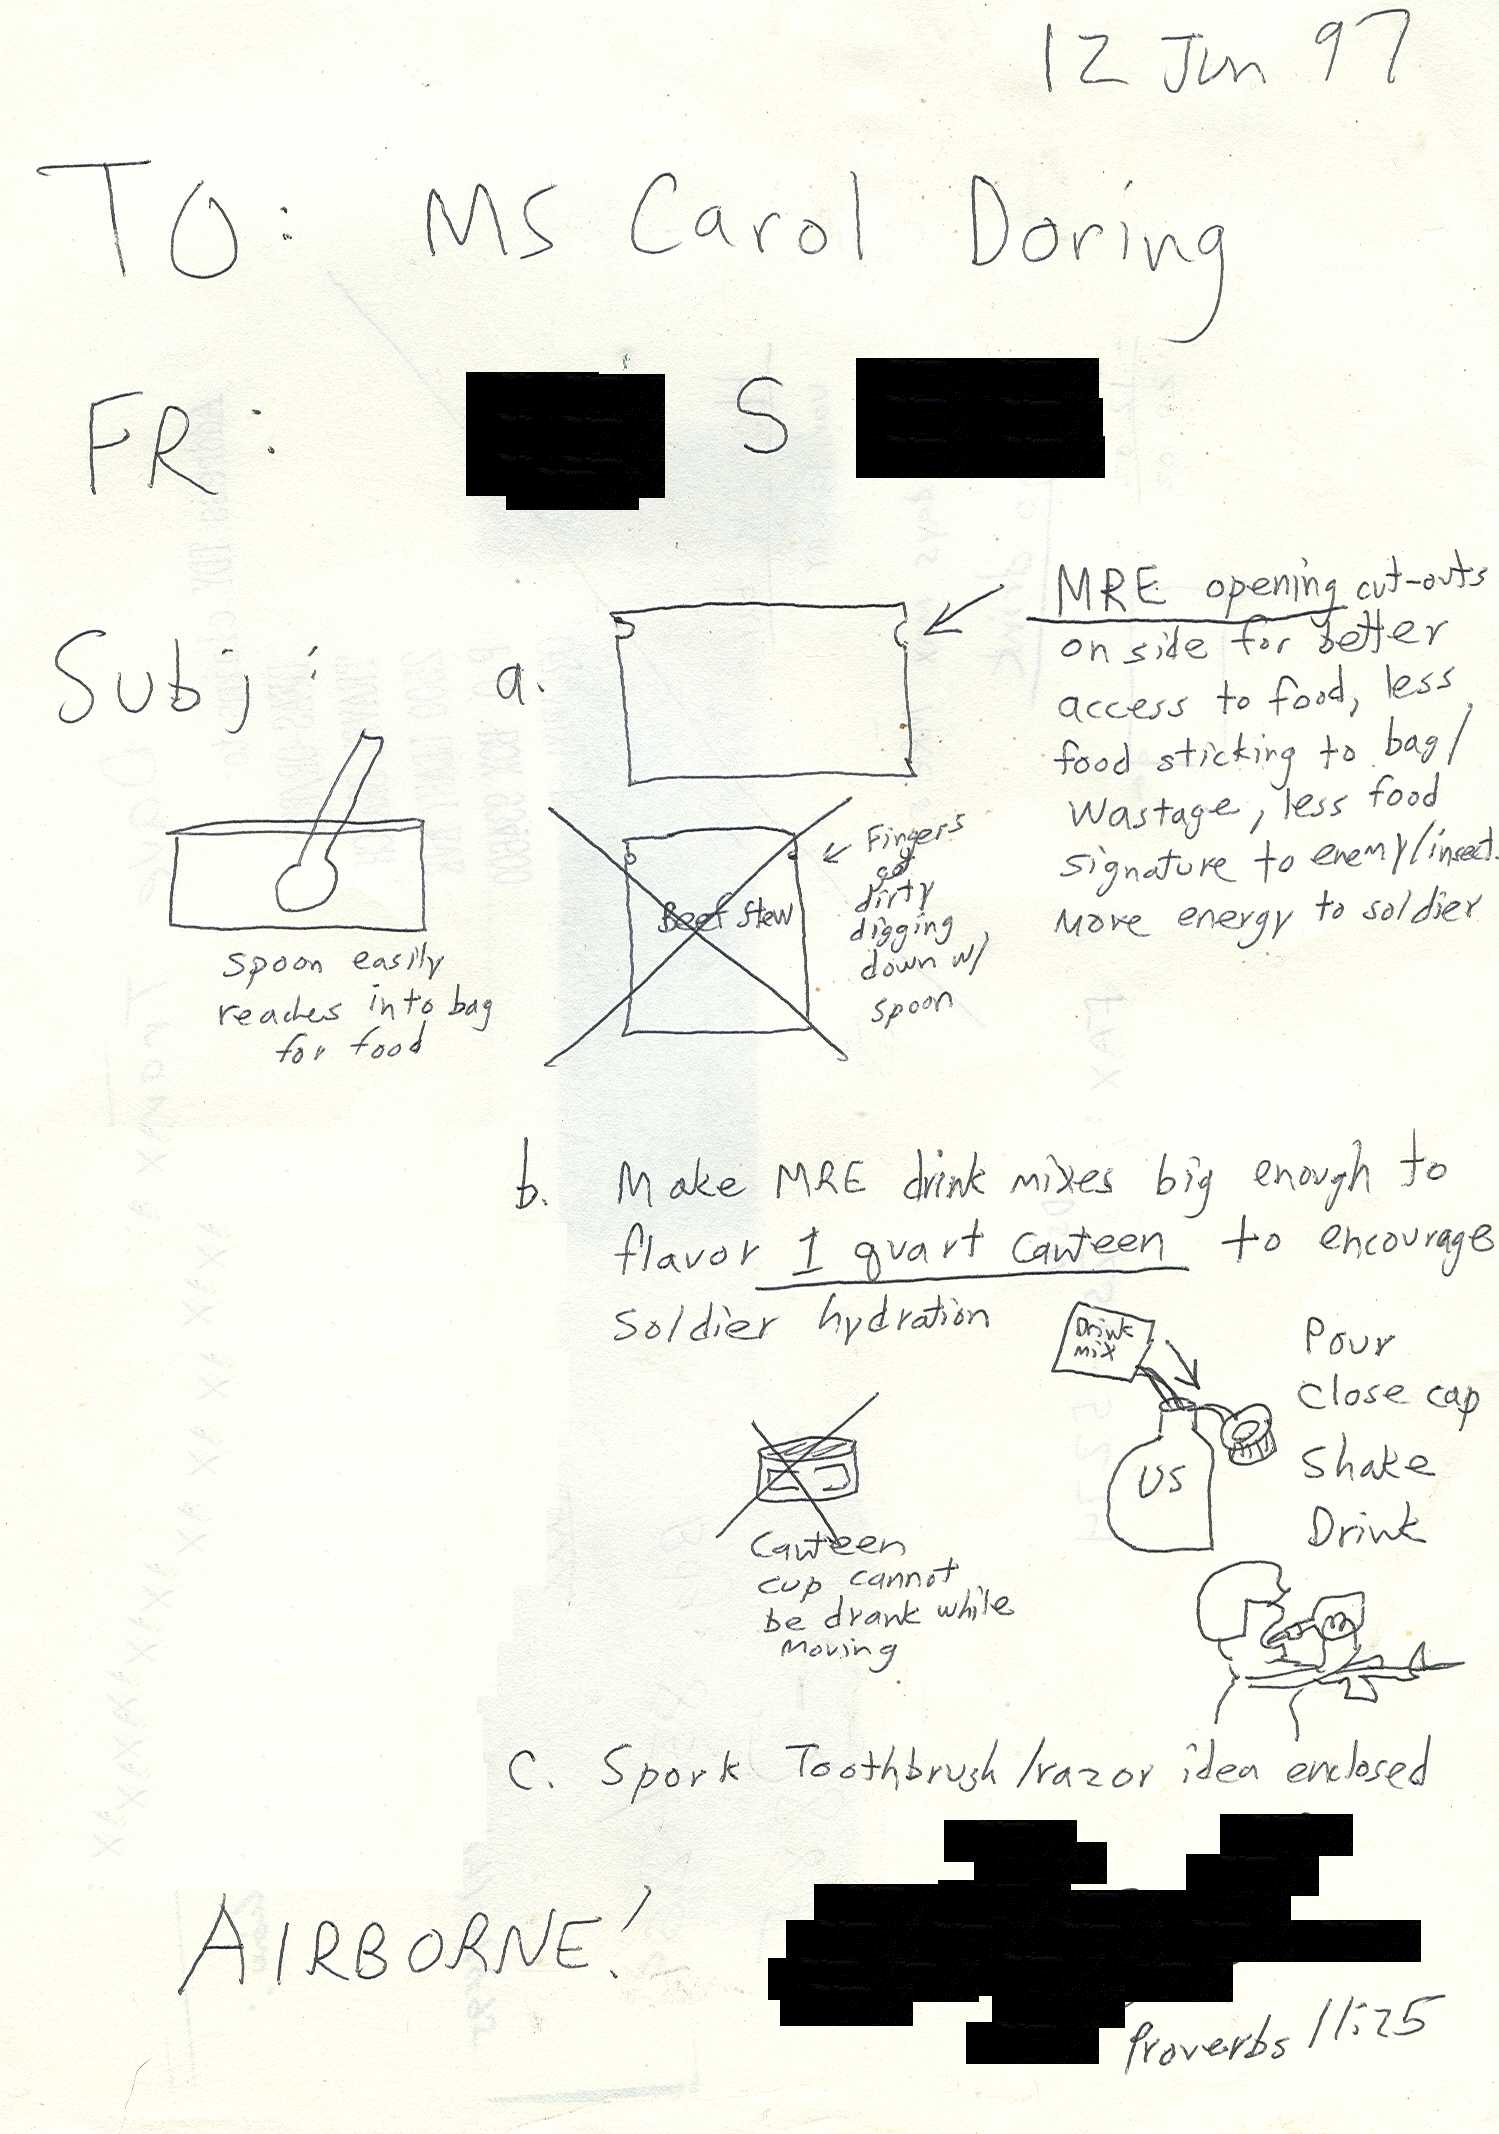 12 Jun 97
TO: MS Carol Doring
FR: S
Subj:
a.
MRE opening cut-outs
on side for better
access to food, less
food sticking to bag/
Wastage, less food
signature to enemy/insect.
More energy to soldier
Spoon easily
reaches into bag
for food
Beef Stew
Fingers
get
dirty
digging
down w/
spoon
b. Make MRE drink mixes big enough to
flavor 1 quart canteen to encourage
soldier hydration
Drink
mix
US
Pour
Close cap
Shake
Drink
Canteen
cup cannot
be drank while
moving
C. Spork Toothbrush/razor idea enclosed
AIRBORNE!
Proverbs 11:25